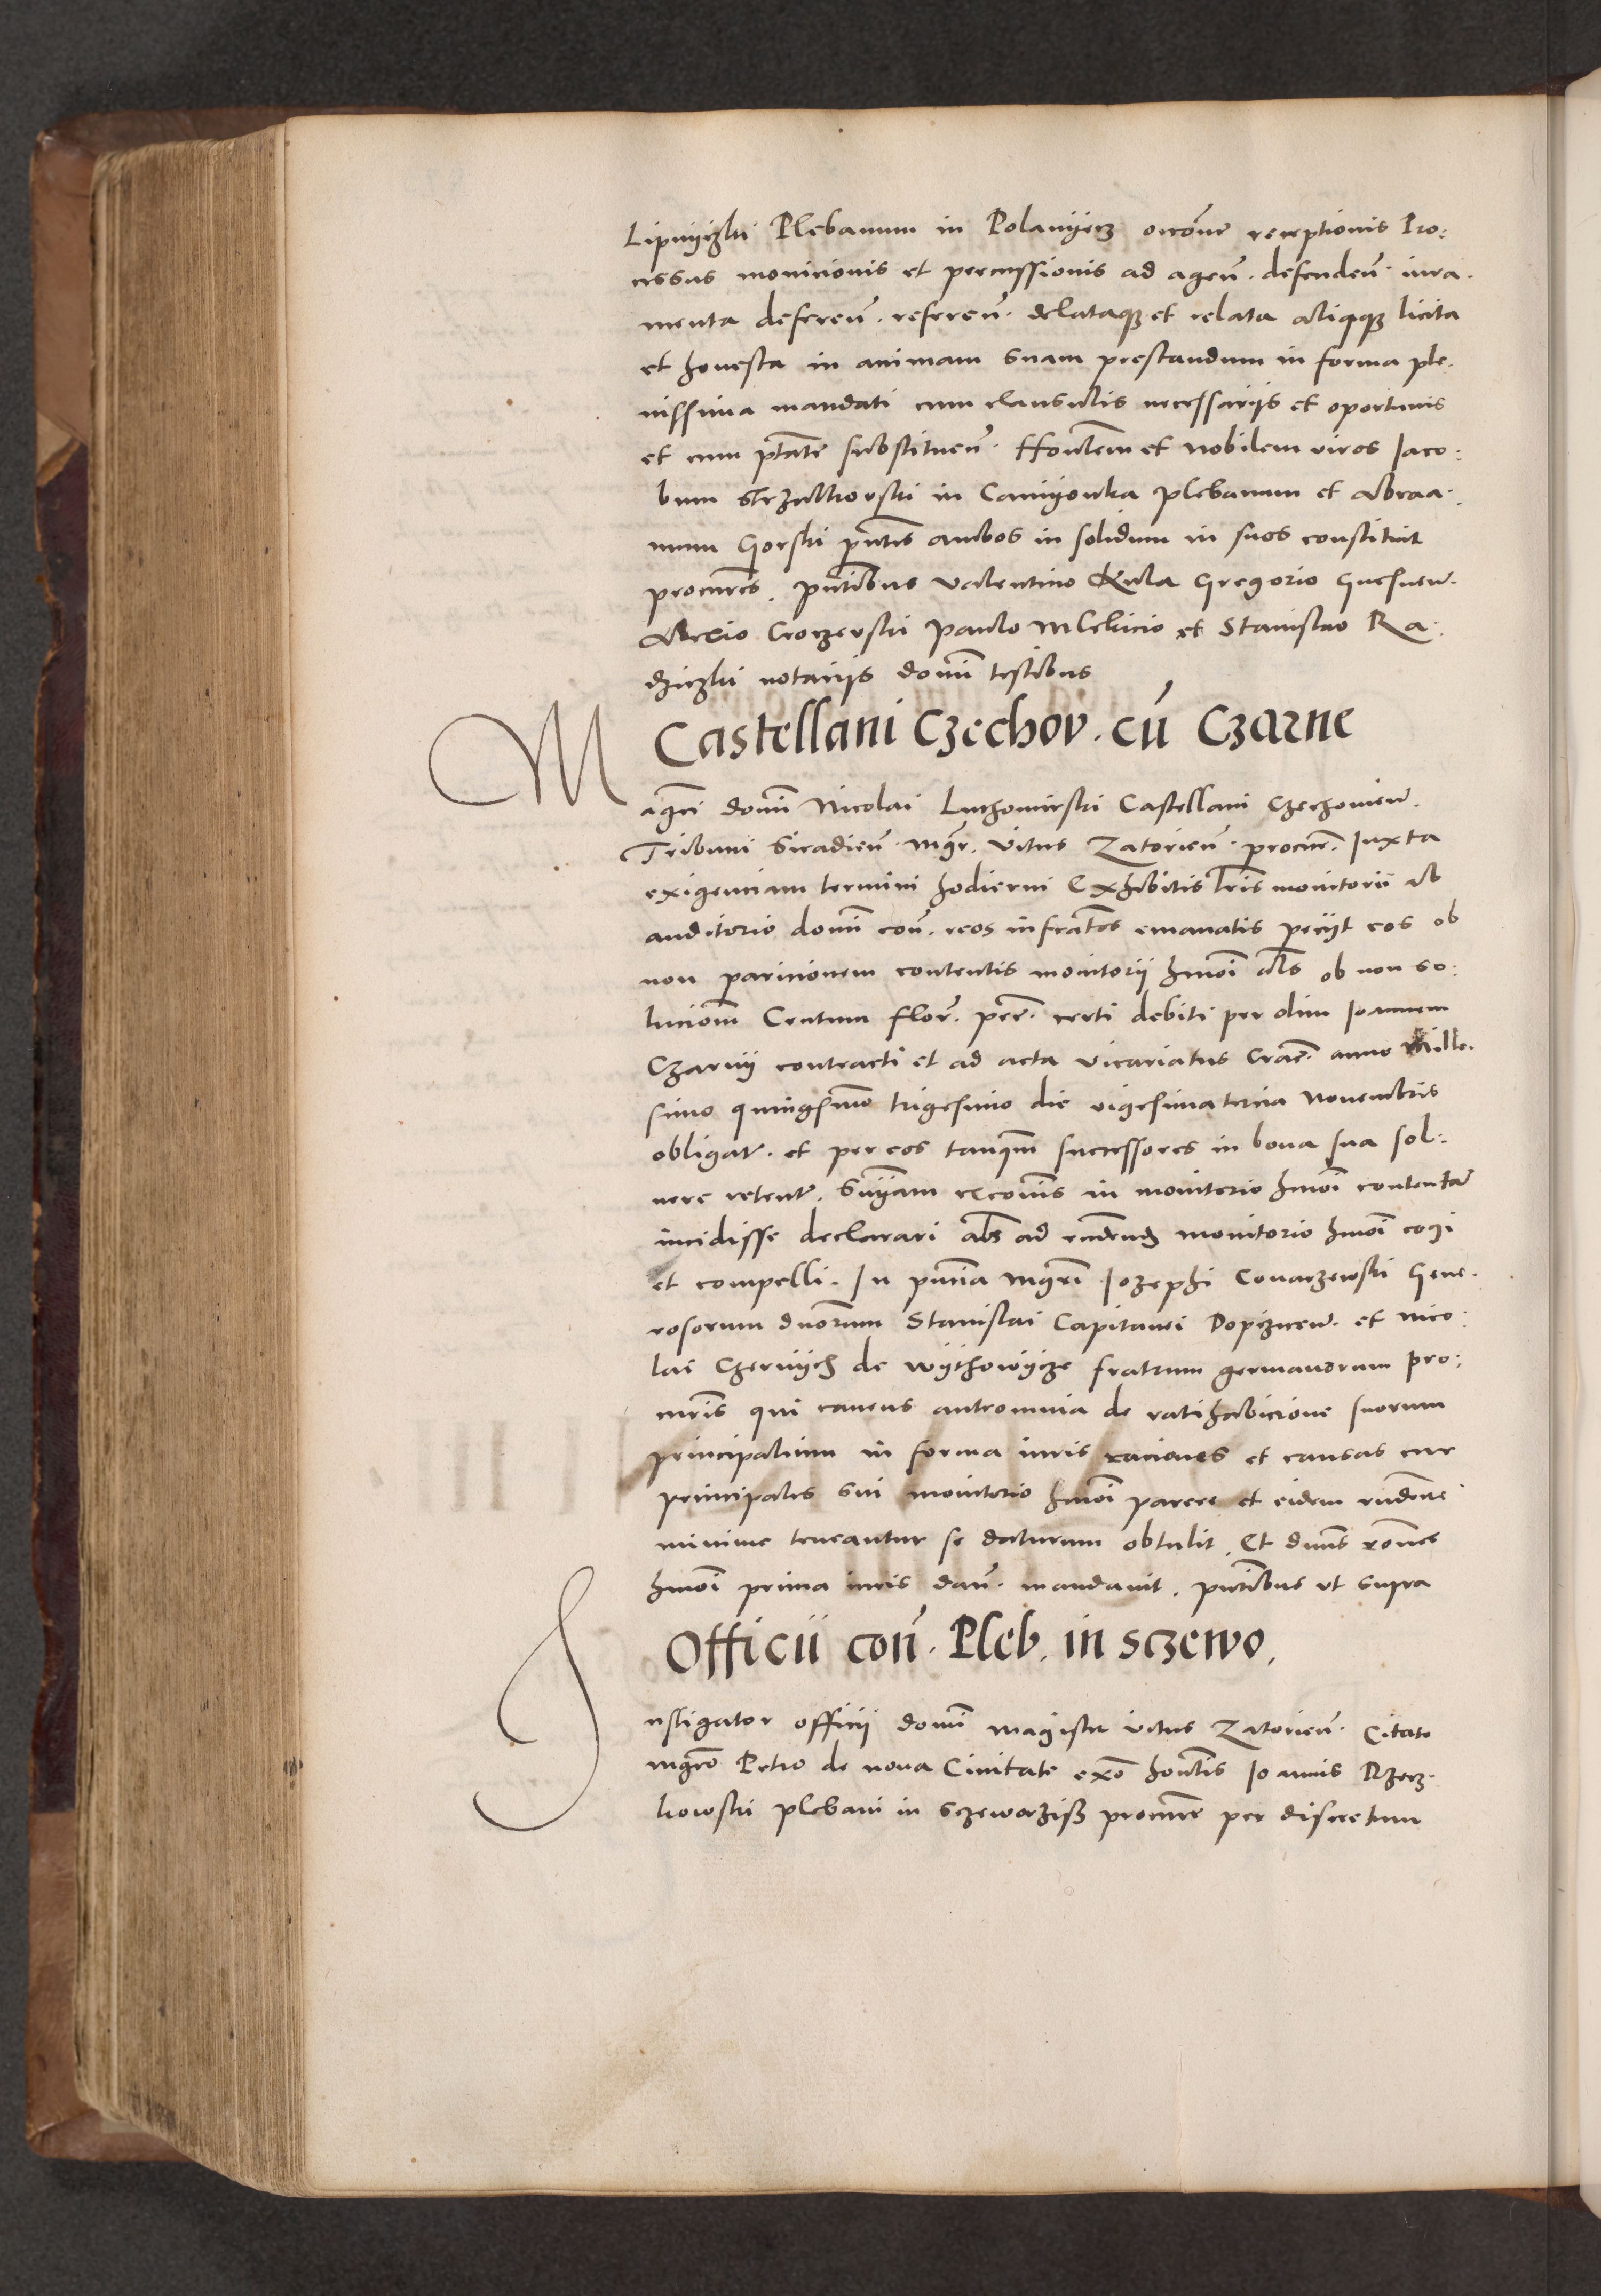 Lipnyczki Plebanum in Polanyecz occõne receptionis Pro:
cessus monicionis et percussionis ad agen̄. defenden̄. iura.
menta deferen̄. referen̄. delataqʒ et relata aliaqʒ licita
et honesta in animam suam prestandum in forma ple.
nissima mandati cum clausulis necessarijs et oportunis
et cum ptãte substituen̄. Honlem et nobilem viros Iaco:
bum Strzalkovski in Camyonka plebanum et Abraa.
mum Gorski pñtes ambos in solidum in suos constituit
procures. pñtibus Valentino Kula Gregorio Gnesnen̄.
Alexio Croczewski Paulo Mlekicio et Stanislao Ra:
dziczki notarijs domi testibus
Castellani Czechov. cū Czarne
Magci domi Nicolai Luthomirski Castellani Czechovien̄.
Tribuni Siradien̄. mgr. Vitus Zatorien̄. procur. Iuxta
exigenciam termini hodierni Exhibitis lris monitorii ab
auditorio domi con̄. reos infractos emanatis peciit eos ob
non paricionem contentis monitorij hmoi als ob non so:
lucionem Centum flor. per. certi debiti per olim Ioannem
Czarny contracti et ad acta vicariatus Crac̃. anno Mille.
simo quingsimo trigesimo die vigesimatercia Novembris
obligat. et per eos tanqm successores in bona sua sol:
vere retent. Snyam excõnis in monitorio hmoi contentã
incidisse declarari als ad rñdendũ monitorio hmoi cogi
et compelli. In pñcia mgri Iozephi Covarzewski Gene.
rosorum dnorum Stanislai Capitanei Dopcznen̄. et Nico:
lai Czernych de Wythowycze fratrum germanorum pro:
curis qui cavens anteomnia de ratihabicione suorum
principalium in forma iuris raciones et causas cur
principales sui monitorio hmoi parere et eidem rñdere
minime teneantur se daturum obtulit. Et dnus rõnes
hmoi prima iuris dan̄. mandavit. pñtibus ut supra
Officii con̄. Pleb. in sczewo.
Instigator officij domi magister Vitus Zatorien̄. Citato
mgro Petro de nova Civitate exõ honlis Ioannis Dzerz.
kowski plebani in Sczeworzisz procure per discretum